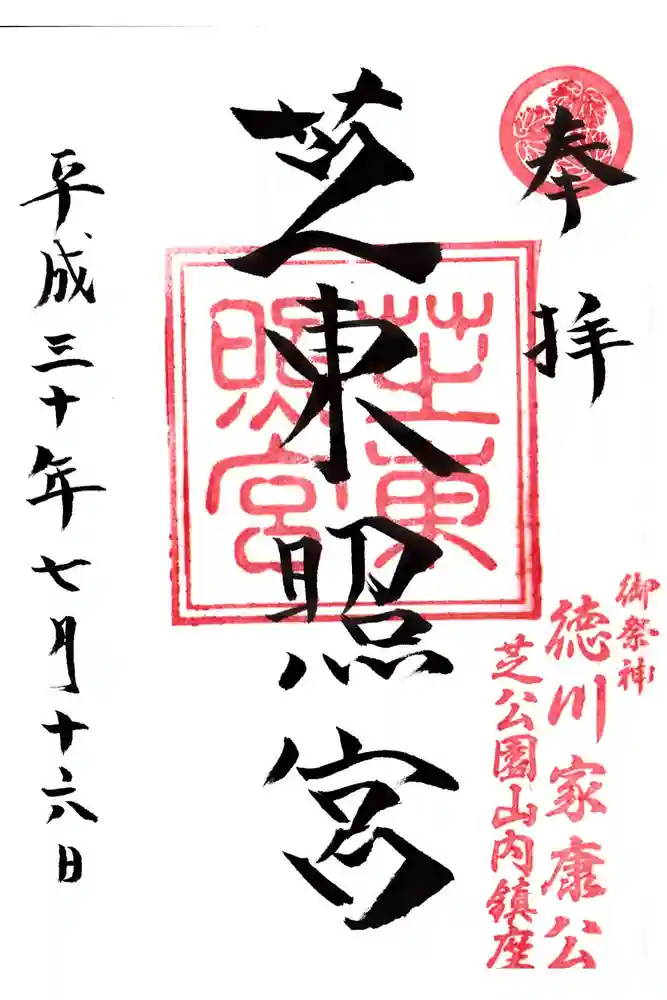 奉拝
御祭神
徳川家康公
芝公園山内鎮座
芝東照宮
芝東照宮
平成三十年七月十六日